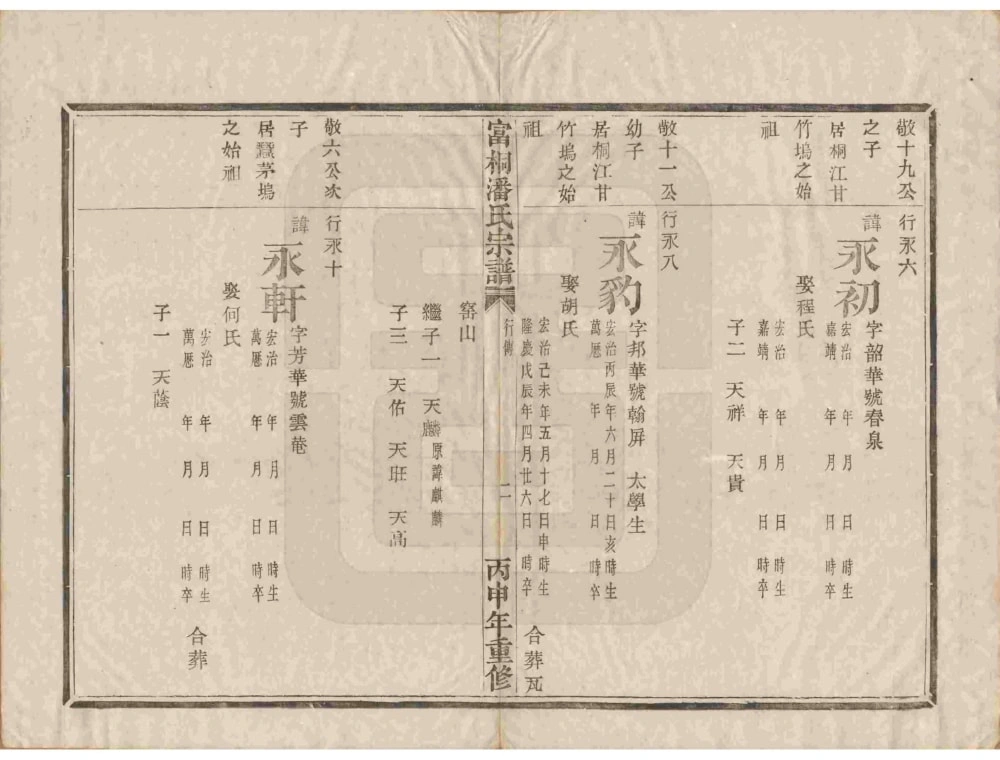 敬十九公
之子
居桐江甘
竹塢之始
祖
行永六
諱永初
字韶華號春泉
宏治 年 月 日 時生
嘉靖 年 月 日 時卒
娶程氏
宏治 年 月 日 時生
嘉靖 年 月 日 時卒
子二 天祥 天貴
敬十一公
幼子
居桐江甘
竹塢之始
祖
行永八
諱永豹
字邦華號翰屏 太學生
宏治丙辰年六月二十日亥時生
萬厯 年 月 日 時卒
娶胡氏
宏治己未年五月十七日申時生
隆慶戊辰年四月廿六日 時卒
合葬瓦
富桐潘氏宗譜
行傳
二
丙申年重修
窰山
繼子一 天麟原諱麒麟
子三 天佑 天班 天高
敬六公次
子
居蠶茅塢
之始祖
行永十
諱永軒
字芳華號雲菴
宏治 年 月 日 時生
萬厯 年 月 日 時卒
娶何氏
宏治 年 月 日 時生
萬厯 年 月 日 時卒
合葬
子一 天蔭